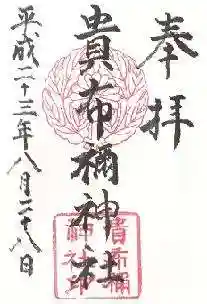 奉拝
貴布禰神社
貴布禰神社印
平成二十三年八月二十八日